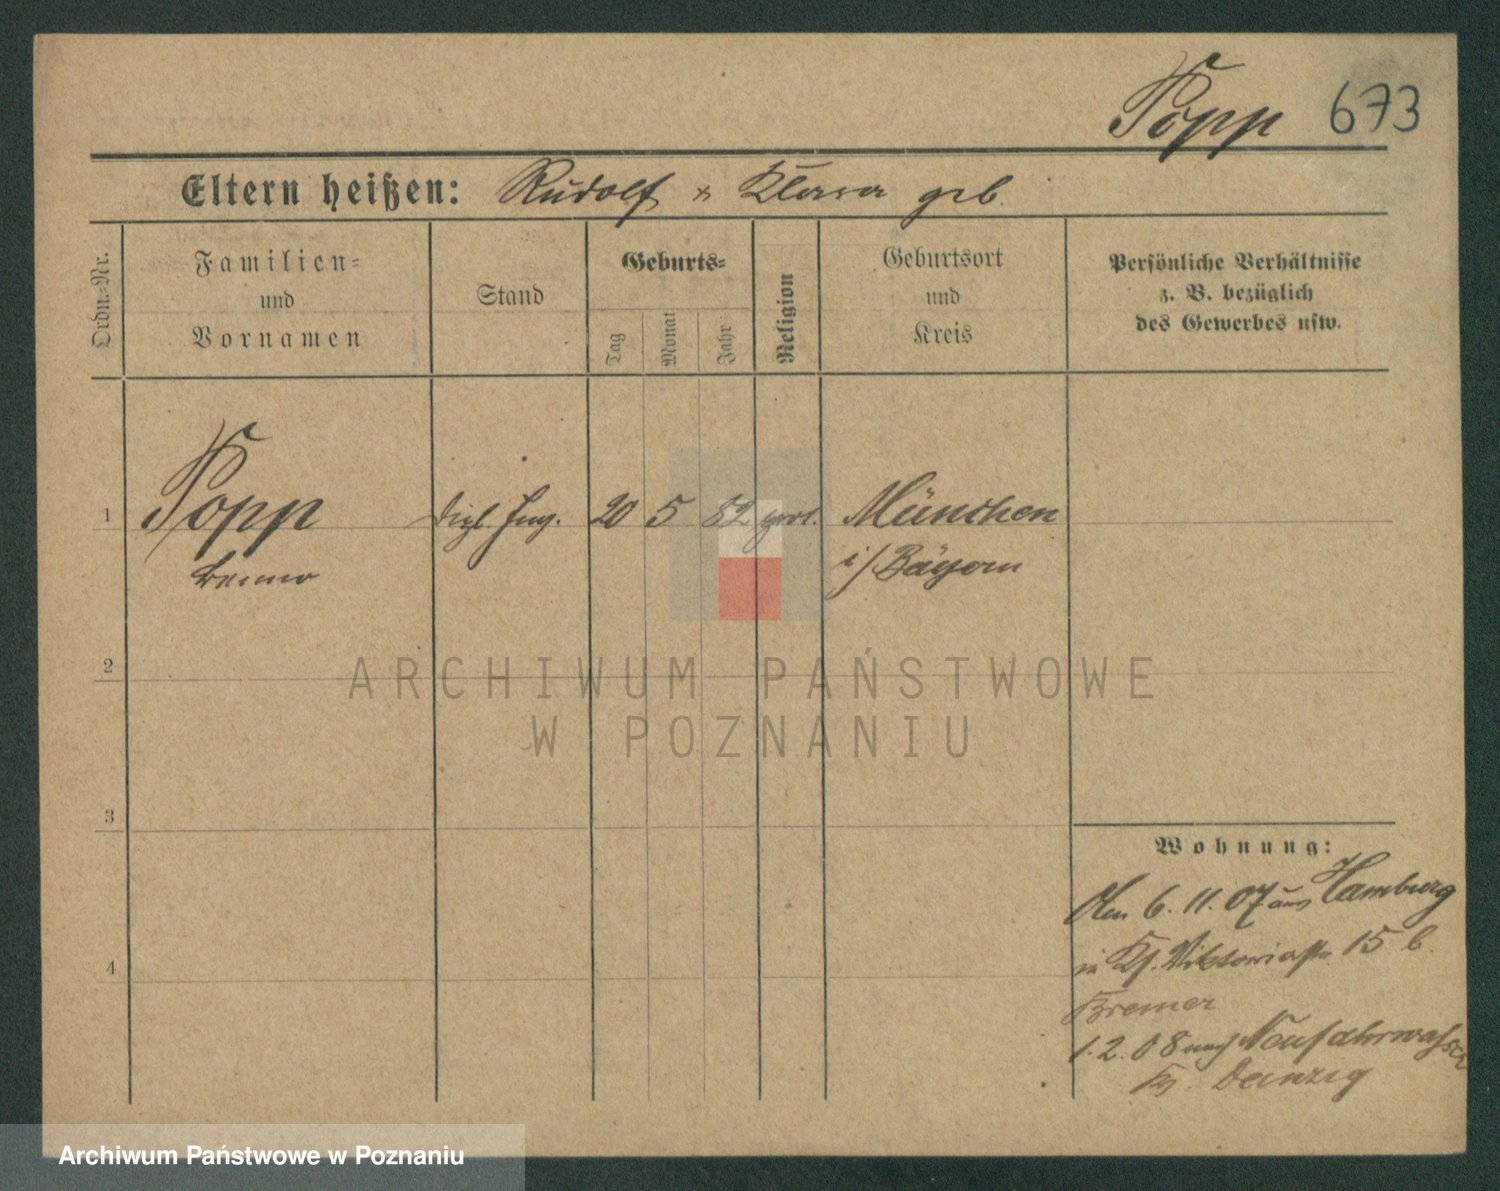 Popp 673
Eltern heißen: Rudolf & Klara geb.
Ordn.-Nr.
Familien-
und
Vornamen
Stand
Geburts-
Tag
Monat
Jahr
Religion
Geburtsort
und
Kreis
Persönliche Verhältnisse
z. B. bezüglich
des Gewerbes usw.
1 Popp Dipl. Ing. 20 5 82 prot. München
Benno i/Bayern
2
ARCHIWUM PAŃSTWOWE
W POZNANIU
3
Wohnung:
Den 6. 11. 07 aus Hamburg
in Viktoriastr. 15 b.
4
Bremer
1. 2. 08 nach Neufahrwasser
Danzig
Archiwum Państwowe w Poznaniu